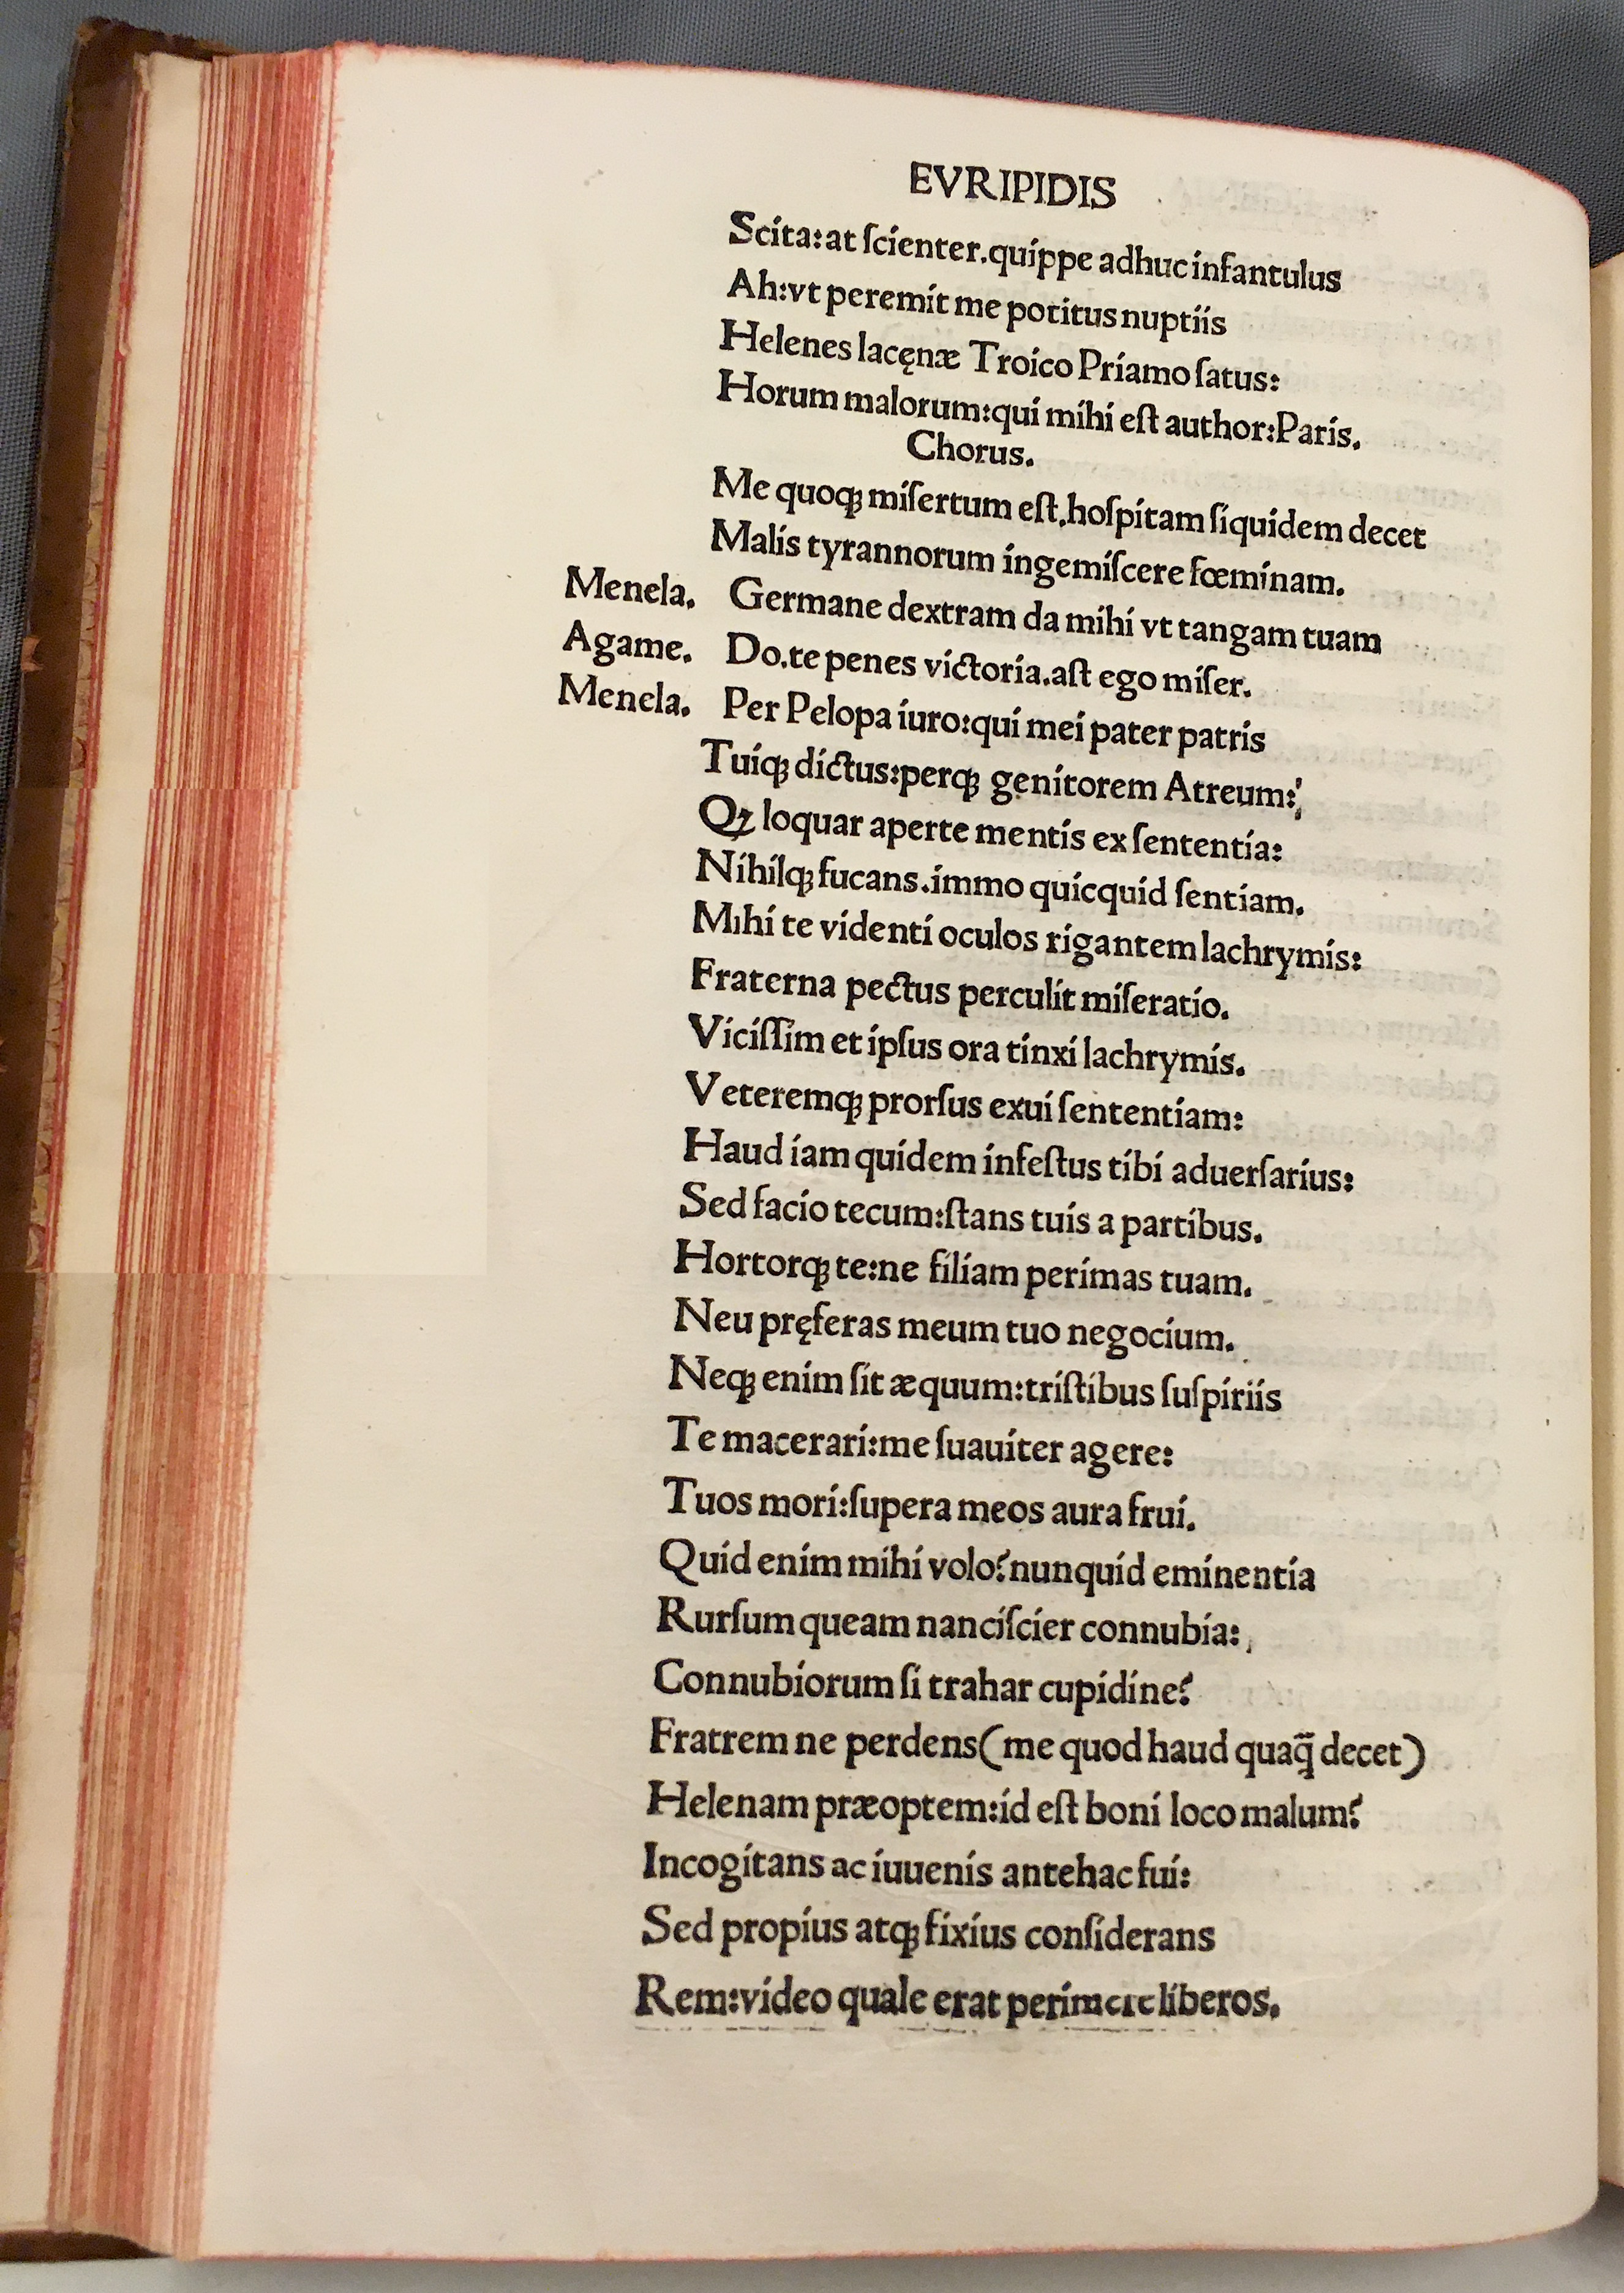 EVRIPIDIS
Scita:at ſcienter.quippe adhuc infantulus
Ah:vt peremit me potitus nuptiis
Helenes lacęnæ Troico Priamo ſatus:
Horum malorum:qui mihi eſt author:Paris.
Chorus.
Me quoqꝫ miſertum eſt.hoſpitam ſiquidem decet
Malis tyrannorum ingemiſcere fœminam.
Menela. Germane dextram da mihi vt tangam tuam
Agame. Do.te penes victoria.aſt ego miſer.
Menela. Per Pelopa iuro:qui mei pater patris
Tuiqꝫ dictus:perqꝫ genitorem Atreum:
Qꝫ loquar aperte mentis ex ſententia:
Nihilqꝫ fucans.immo quicquid ſentiam.
Mihi te videnti oculos rigantem lachrymis:
Fraterna pectus perculit miſeratio.
Viciſſim et ipſus ora tinxi lachrymis.
Veteremqꝫ prorſus exui ſententiam:
Haud iam quidem infeſtus tibi aduerſarius:
Sed facio tecum:ſtans tuis a partibus.
Hortorqꝫ te:ne filiam perimas tuam.
Neu pręferas meum tuo negocium.
Neqꝫ enim ſit æquum:triſtibus ſuſpiriis
Te macerari:me ſuauiter agere:
Tuos mori:ſupera meos aura frui.
Quid enim mihi volo?nunquid eminentia
Rurſum queam nanciſcier connubia:
Connubiorum ſi trahar cupidine?
Fratrem ne perdens(me quod haud quaq̄ decet)
Helenam præoptem:id eſt boni loco malum?
Incogitans ac iuuenis antehac fui:
Sed propius atqꝫ fixius conſiderans
Rem:video quale erat perimere liberos.